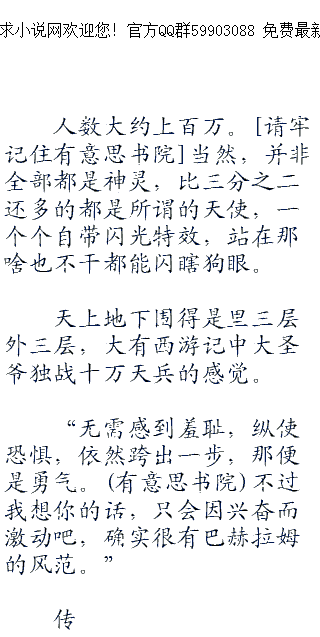 求小说网欢迎您！官方QQ群59903088 免费最新
人数大约上百万。[请牢
记住有意思书院]当然，并非
全部都是神灵，比三分之二
还多的都是所谓的天使，一
个个自带闪光特效，站在那
啥也不干都能闪瞎狗眼。
天上地下围得是里三层
外三层，大有西游记中大圣
爷独战十万天兵的感觉。
“无需感到羞耻，纵使
恐惧，依然跨出一步，那便
是勇气。(有意思书院)不过
我想你的话，只会因兴奋而
激动吧，确实很有巴赫拉姆
的风范。”
传